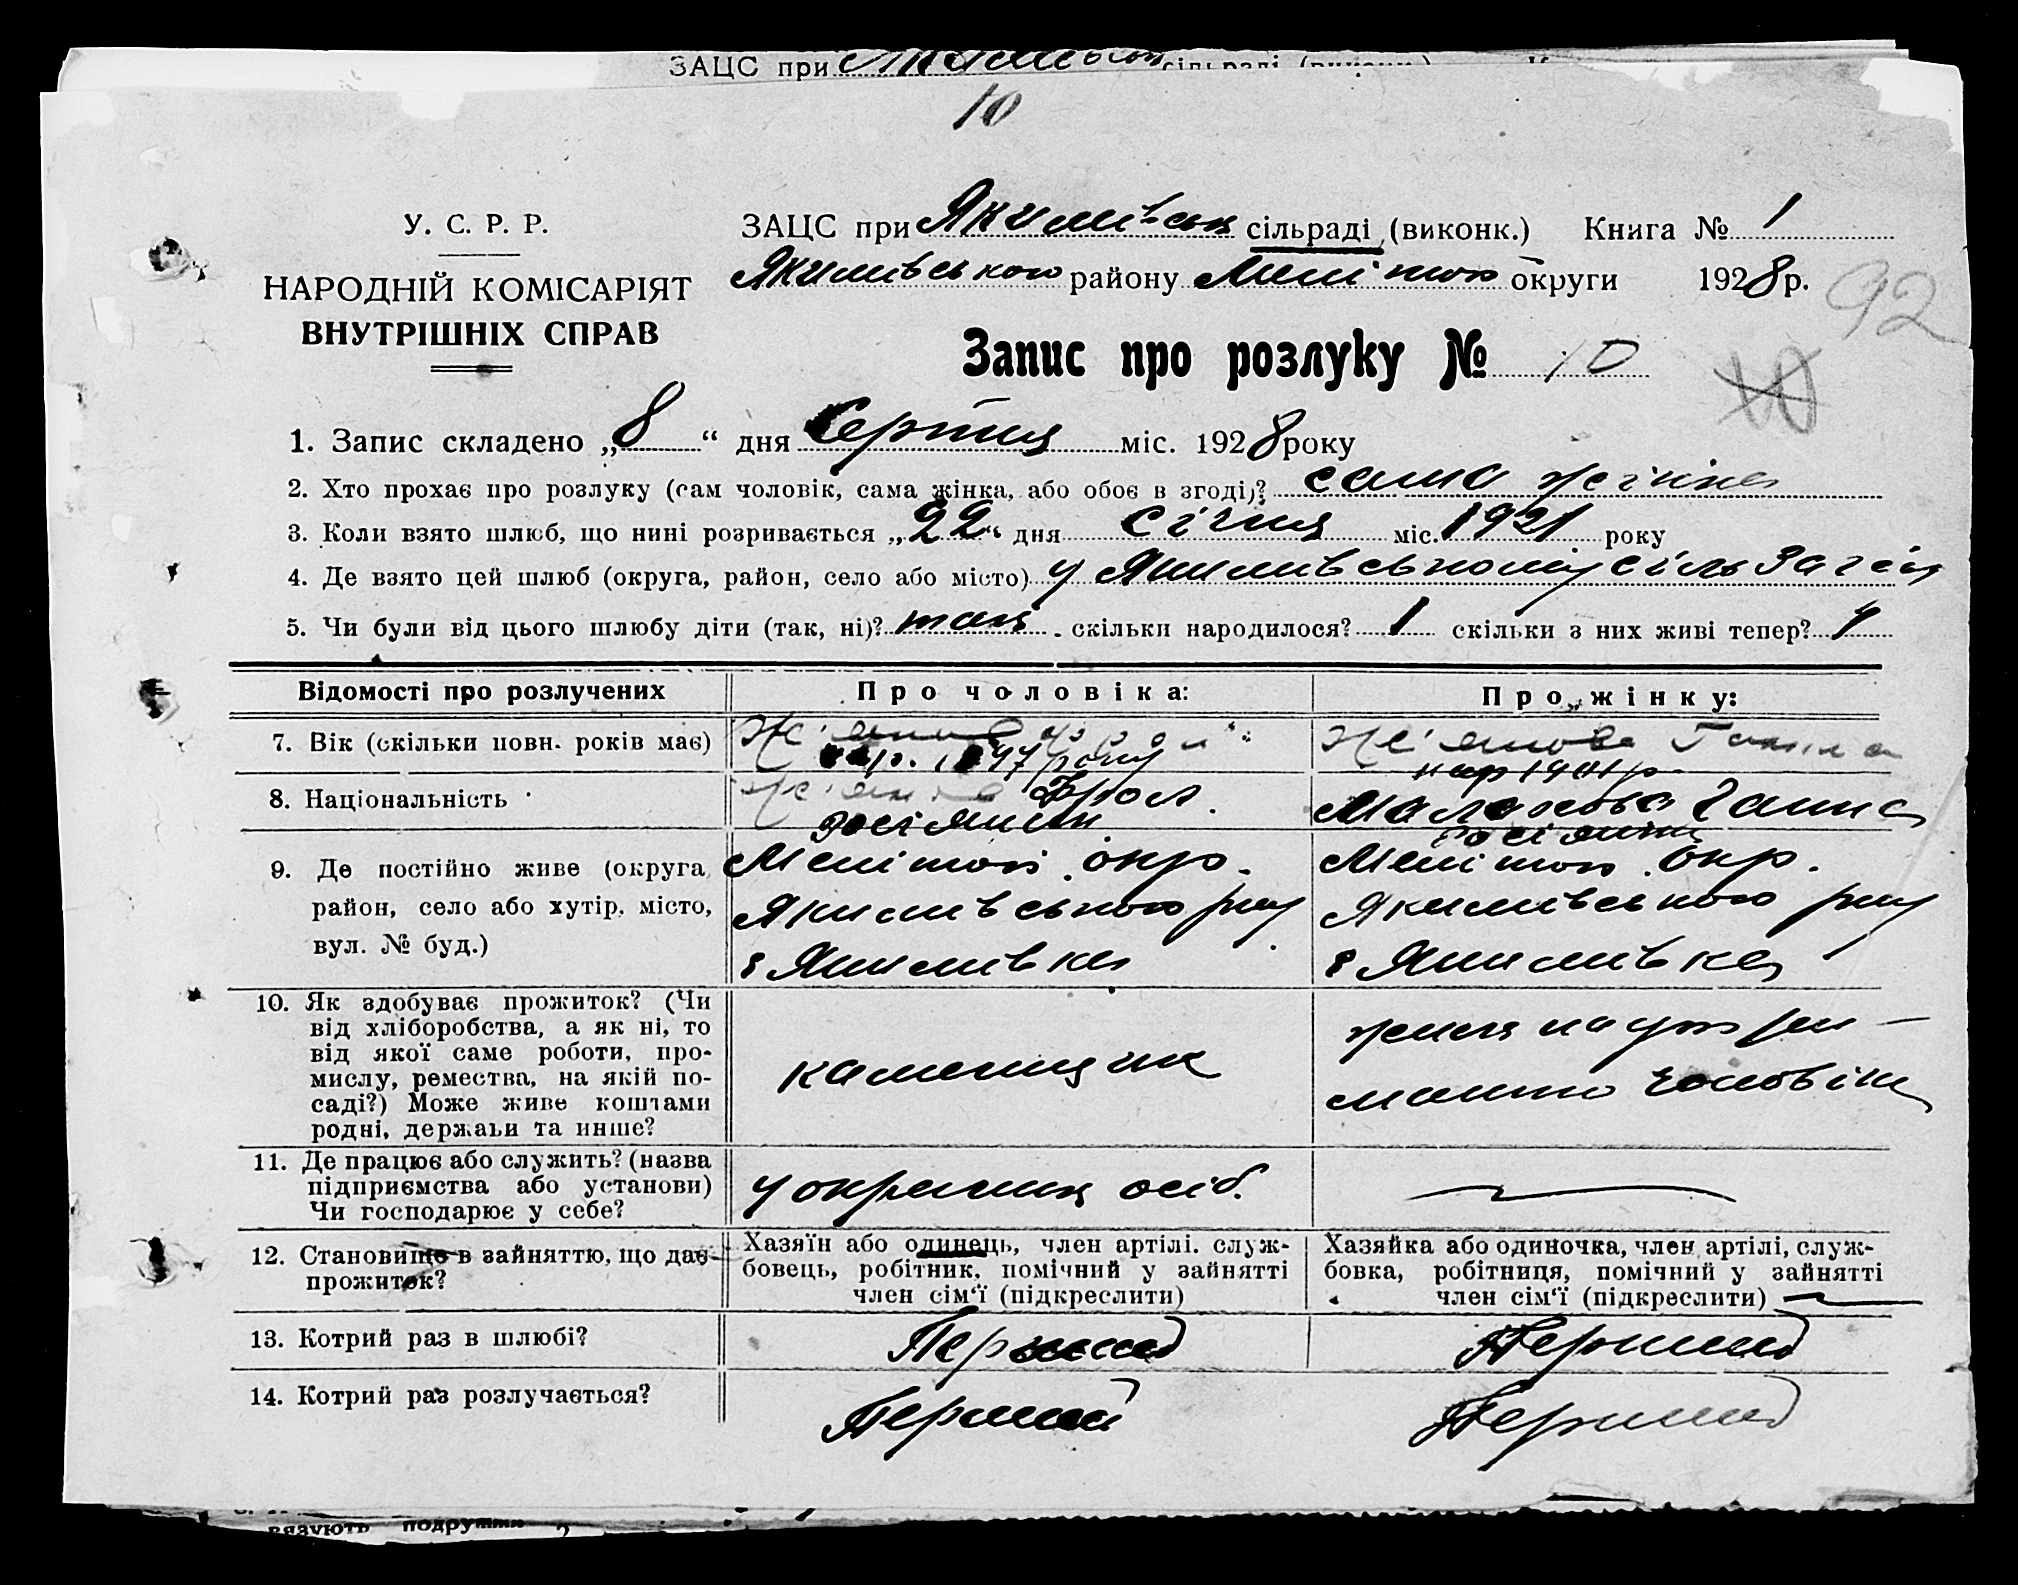 ЗАЦС при
10
У. С. Р. Р.
НАРОДНІЙ КОМІСАРІЯТ
ВНУТРІШНІХ СПРАВ
ЗАЦС при Якимівськ сільраді (виконк.) Книга № 1
Якимівського району Меліток округи 1928 р.
92
Запис про розлуку № 10
10
1. Запис складено „8“ дня Серпня міс. 1928 року
2. Хто прохає про розлуку (сам чоловік, сама жінка, або обоє в згоді)? сама жінка
3. Коли взято шлюб, що нині розривається „22“ дня січня міс. 1921 року
4. Де взято цей шлюб (округа, район, село або місто) у Якимивському сільЗагсі
5. Чи були від цього шлюбу діти (так, ні)? так скільки народилося? 1 скільки з них живі тепер? 1
Відомості про розлучених
Про чоловіка:
Про жінку:
7. Вік (скільки повн. років має)
нар. 1897 року
Ганна
нар 1901 р.
8. Національність
Фрол.
росіянин
Ганна
росіянка
9. Де постійно живе (округа район, село або хутір, місто, вул. № буд.)
Меліток. окр.
Якимівського р-ну
с Якимівка
Меліток. окр.
Якимівського р-ну
с Якимівка
10. Як здобуває прожиток? (Чи
від хліборобства, а як ні, то
від якої саме роботи, про-
мислу, ремества, на якій по-
саді?) Може живе коштами
родні, держави та инше?
каменщик
жила на утри-
манню чоловіка
11. Де працює або служить? (назва
підприємства або установи)
Чи господарює у себе?
у окремих осіб.
12. Становище в зайняттю, що дає
прожиток?
Хазяїн або одинець, член артілі. служ-
бовець, робітник, помічний у зайнятті
член сім‘ї (підкреслити)
Хазяйка або одиночка, член артілі, служ-
бовка, робітниця, помічний у зайнятті
член сім‘ї (підкреслити)
13. Котрий раз в шлюбі?
Перший
Перший
14. Котрий раз розлучається?
Перший
Перший
вязують подружжя